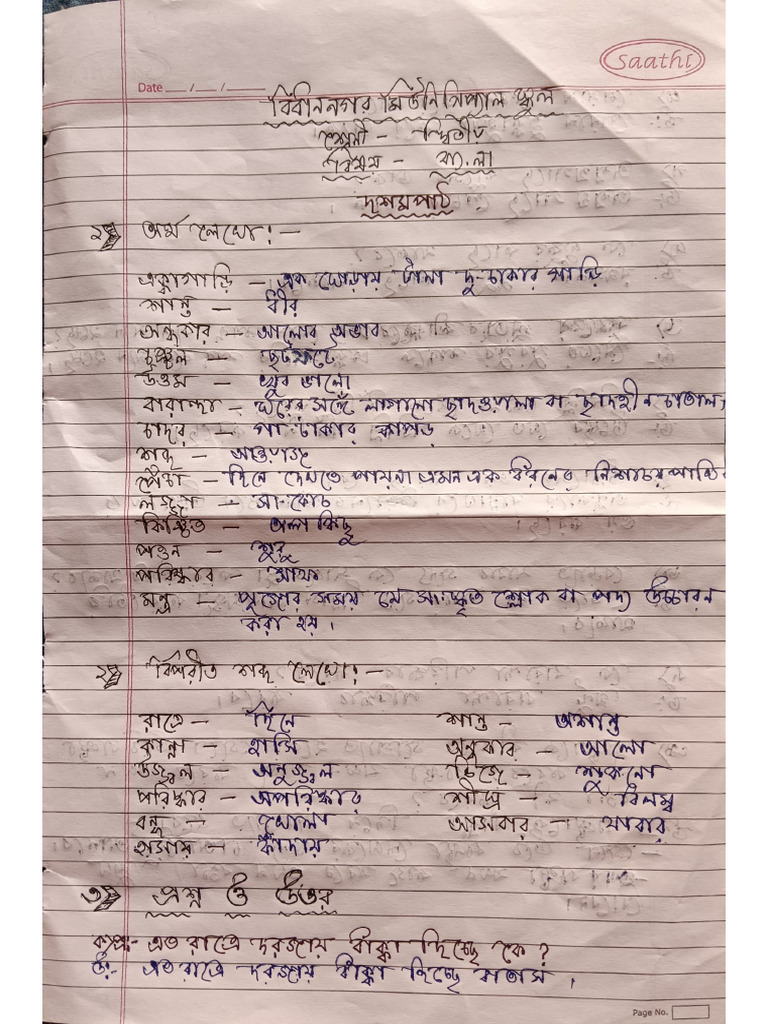 saathi
Date __/__/__
বিধাননগর মিউনিসিপ্যাল স্কুল
শ্রেণী - দ্বিতীয়
বিষয় - বাংলা
দশমপাঠ
অর্থ লেখো:-
এক্কাগাড়ি - এক ঘোড়ায় টানা দু-চাকার গাড়ি
শান্ত - ধীর
অন্ধকার - আলোর অভাব
চঞ্চল - ছটফটে
উত্তম - খুব ভালো
বারান্দা - ঘরের সঙ্গে লাগানো ছাদওয়ালা বা ছাদহীন চাতাল,
চাদর - গা ঢাকার কাপড়
শব্দ - আওয়াজ
পেঁচা - দিনে দেখতে পায়না এমন এক ধরনের নিশাচর পাখি
লজ্জা - সংকোচ
কিঞ্চিত - অল্প কিছু
পত্তন - শুরু
পরিষ্কার - সাফ
মন্ত্র - পুজোর সময় যে সংস্কৃত শ্লোক বা পদ্য উচ্চারন
করা হয়।
২। বিপরীত শব্দ লেখো:-
রাত্রে - দিনে শান্ত - অশান্ত
কান্না - হাসি অন্ধকার - আলো
উজ্জ্বল - অনুজ্জ্বল ভিজে - শুকনো
পরিষ্কার - অপরিষ্কার শীঘ্র - বিলম্ব
বন্ধ - খোলা আসবার - যাবার
হাসায় - কাঁদায়
৩। প্রশ্ন ও উত্তর
ক) প্রঃ- এত রাত্রে দরজায় ধাক্কা দিচ্ছে কে?
উঃ- এত রাত্রে দরজায় ধাক্কা দিচ্ছে বাতাস।
Page No.